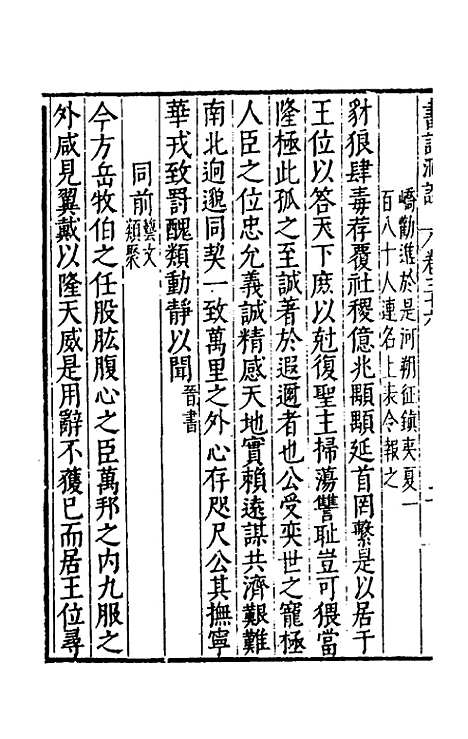 書記洞詮 卷三十六
嶠勸進於是河朔征鎮夷夏一
百八十人連名上表令報之
豺狼肆毒荐覆社稷億兆顒顒延首罔繫是以居于
王位以答天下庶以尅復聖主掃蕩讐耻豈可猥當
隆極此孤之至誠著於遐邇者也公受奕世之寵極
人臣之位忠允義誠精感天地實賴遠謀共濟艱難
南北逈邈同契一致萬里之外心存咫尺公其撫寧
華戎致罰醜類動靜以聞 晉書
同前 藝文類聚
今方岳牧伯之任股肱腹心之臣萬邦之内九服之
外咸見翼戴以隆天威是用辭不獲已而居王位尋